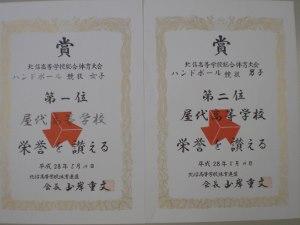 賞
北信高等学校総合体育大会
ハンドボール 競技 女子
第一位
屋代高等学校
栄誉を讃える
平成28年5月
北信高等学校体育連盟
会長 山岸重文
賞
北信高等学校総合体育大会
ハンドボール 競技 男子
第二位
屋代高等学校
栄誉を讃える
平成28年5月
北信高等学校体育連盟
会長 山岸重文